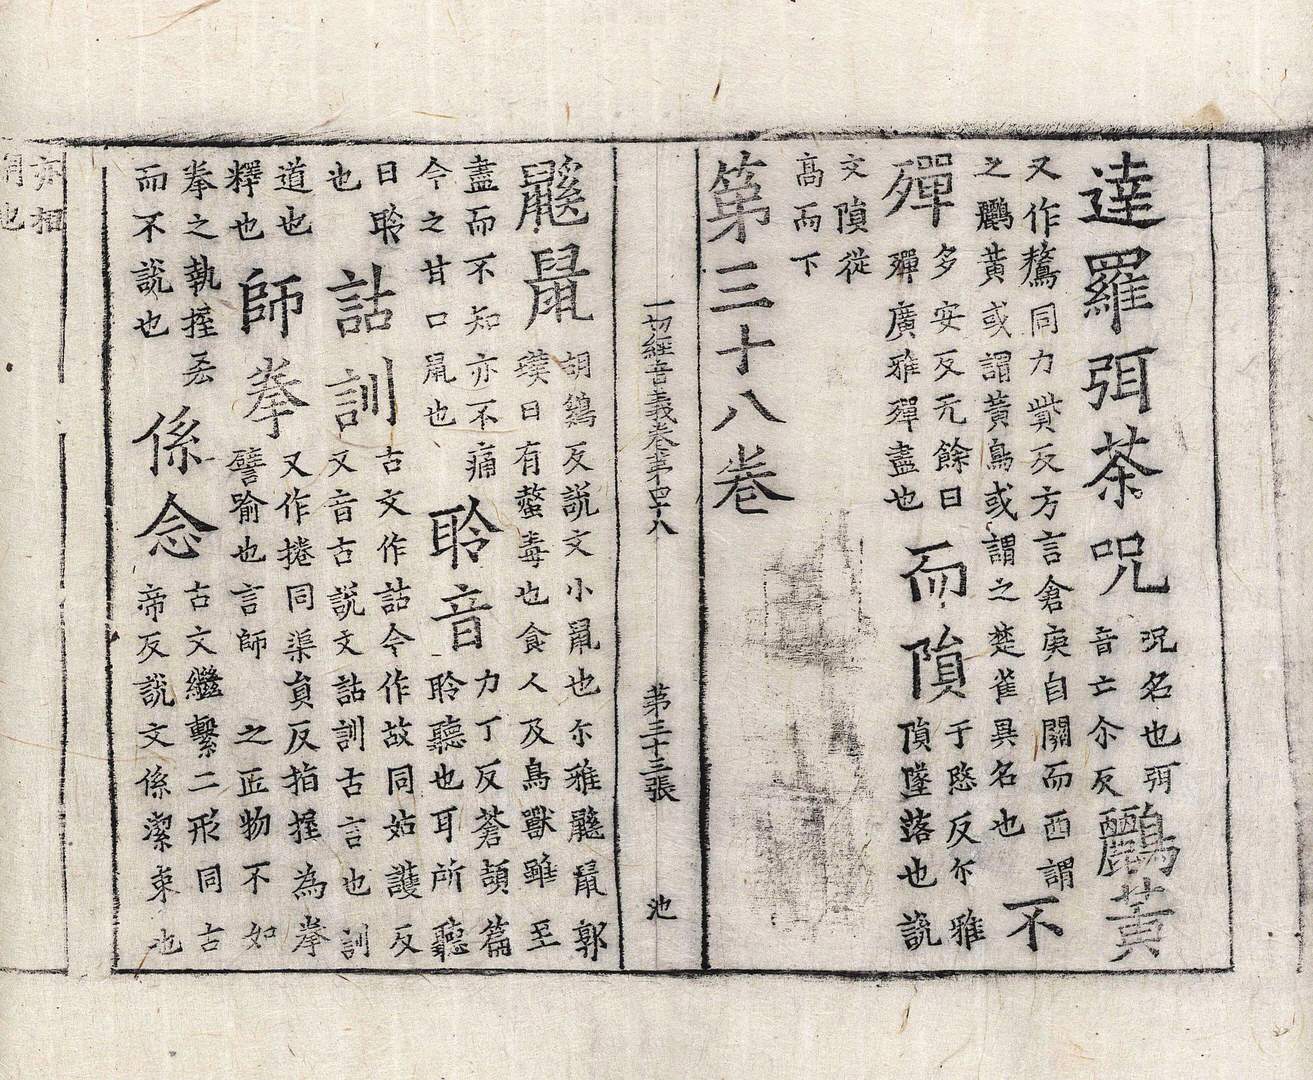 達羅弭荼呪
呪名也弭
音亡尒反
鸝黃
又作鵹同力奚反方言倉庚自關而西謂
之鸝黃或謂黃鳥或謂之楚雀具名也
不
殫
多安反无餘曰
殫廣雅殫盡也
而隕
于愍反尒雅
隕墜落也說
文隕從
高而下
第三十八卷
一切經音義卷第四十八 第三十三張 池
鼷鼠
胡鷄反說文小鼠也尒雅鼷鼠郭
璞曰有螫毒也食人及鳥獸雖至
盡而不知亦不痛
今之甘口鼠也
聆音
力丁反蒼頡篇
聆聽也耳所聽
曰聆
也
詁訓
古文作詁今作故同姑護反
又音古說文詁訓古言也訓
道也
釋也
師拳
又作捲同渠員反指握為拳
譬喻也言師之匠物不如
拳之執握吝
而不說也
係念
古文繼繫二形同古
帝反說文係潔束也
亦相